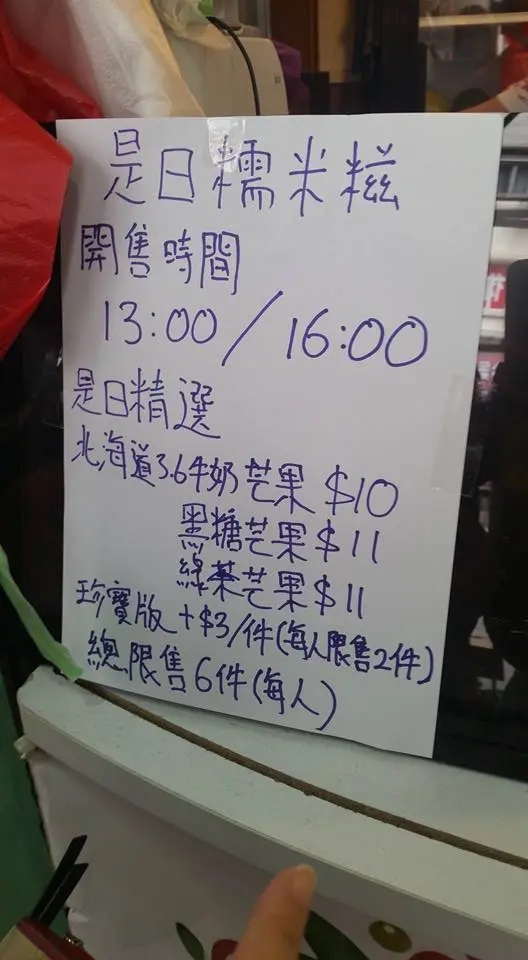 是日糯米糍
開售時間
13:00/16:00
是日精選
北海道3.6牛奶芒果 $10
黑糖芒果 $11
綠茶芒果 $11
珍寶版 +$3/件(每人限售2件)
總限售6件(每人)